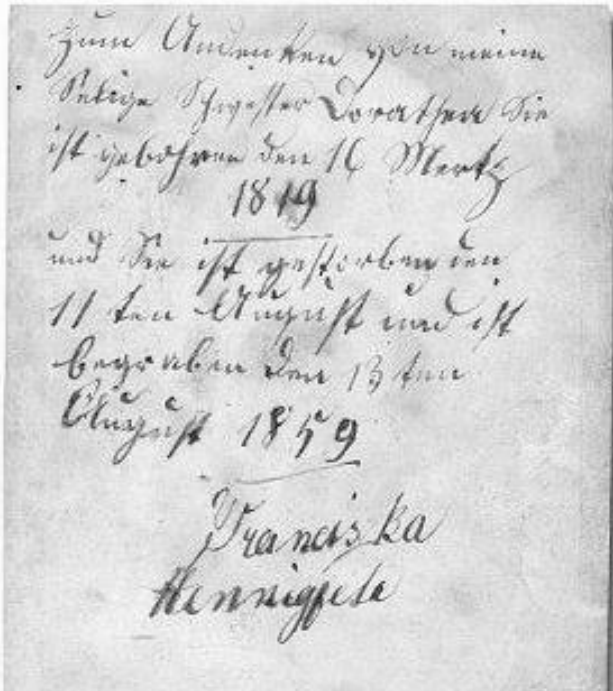 Zum Andenken von meine
Selige Schwester Dorathea Sie
ist gebohren den 16 Mertz
1819
und Sie ist gestorben den
11 ten August und ist
begraben den 13 ten
August 1859
Franciska